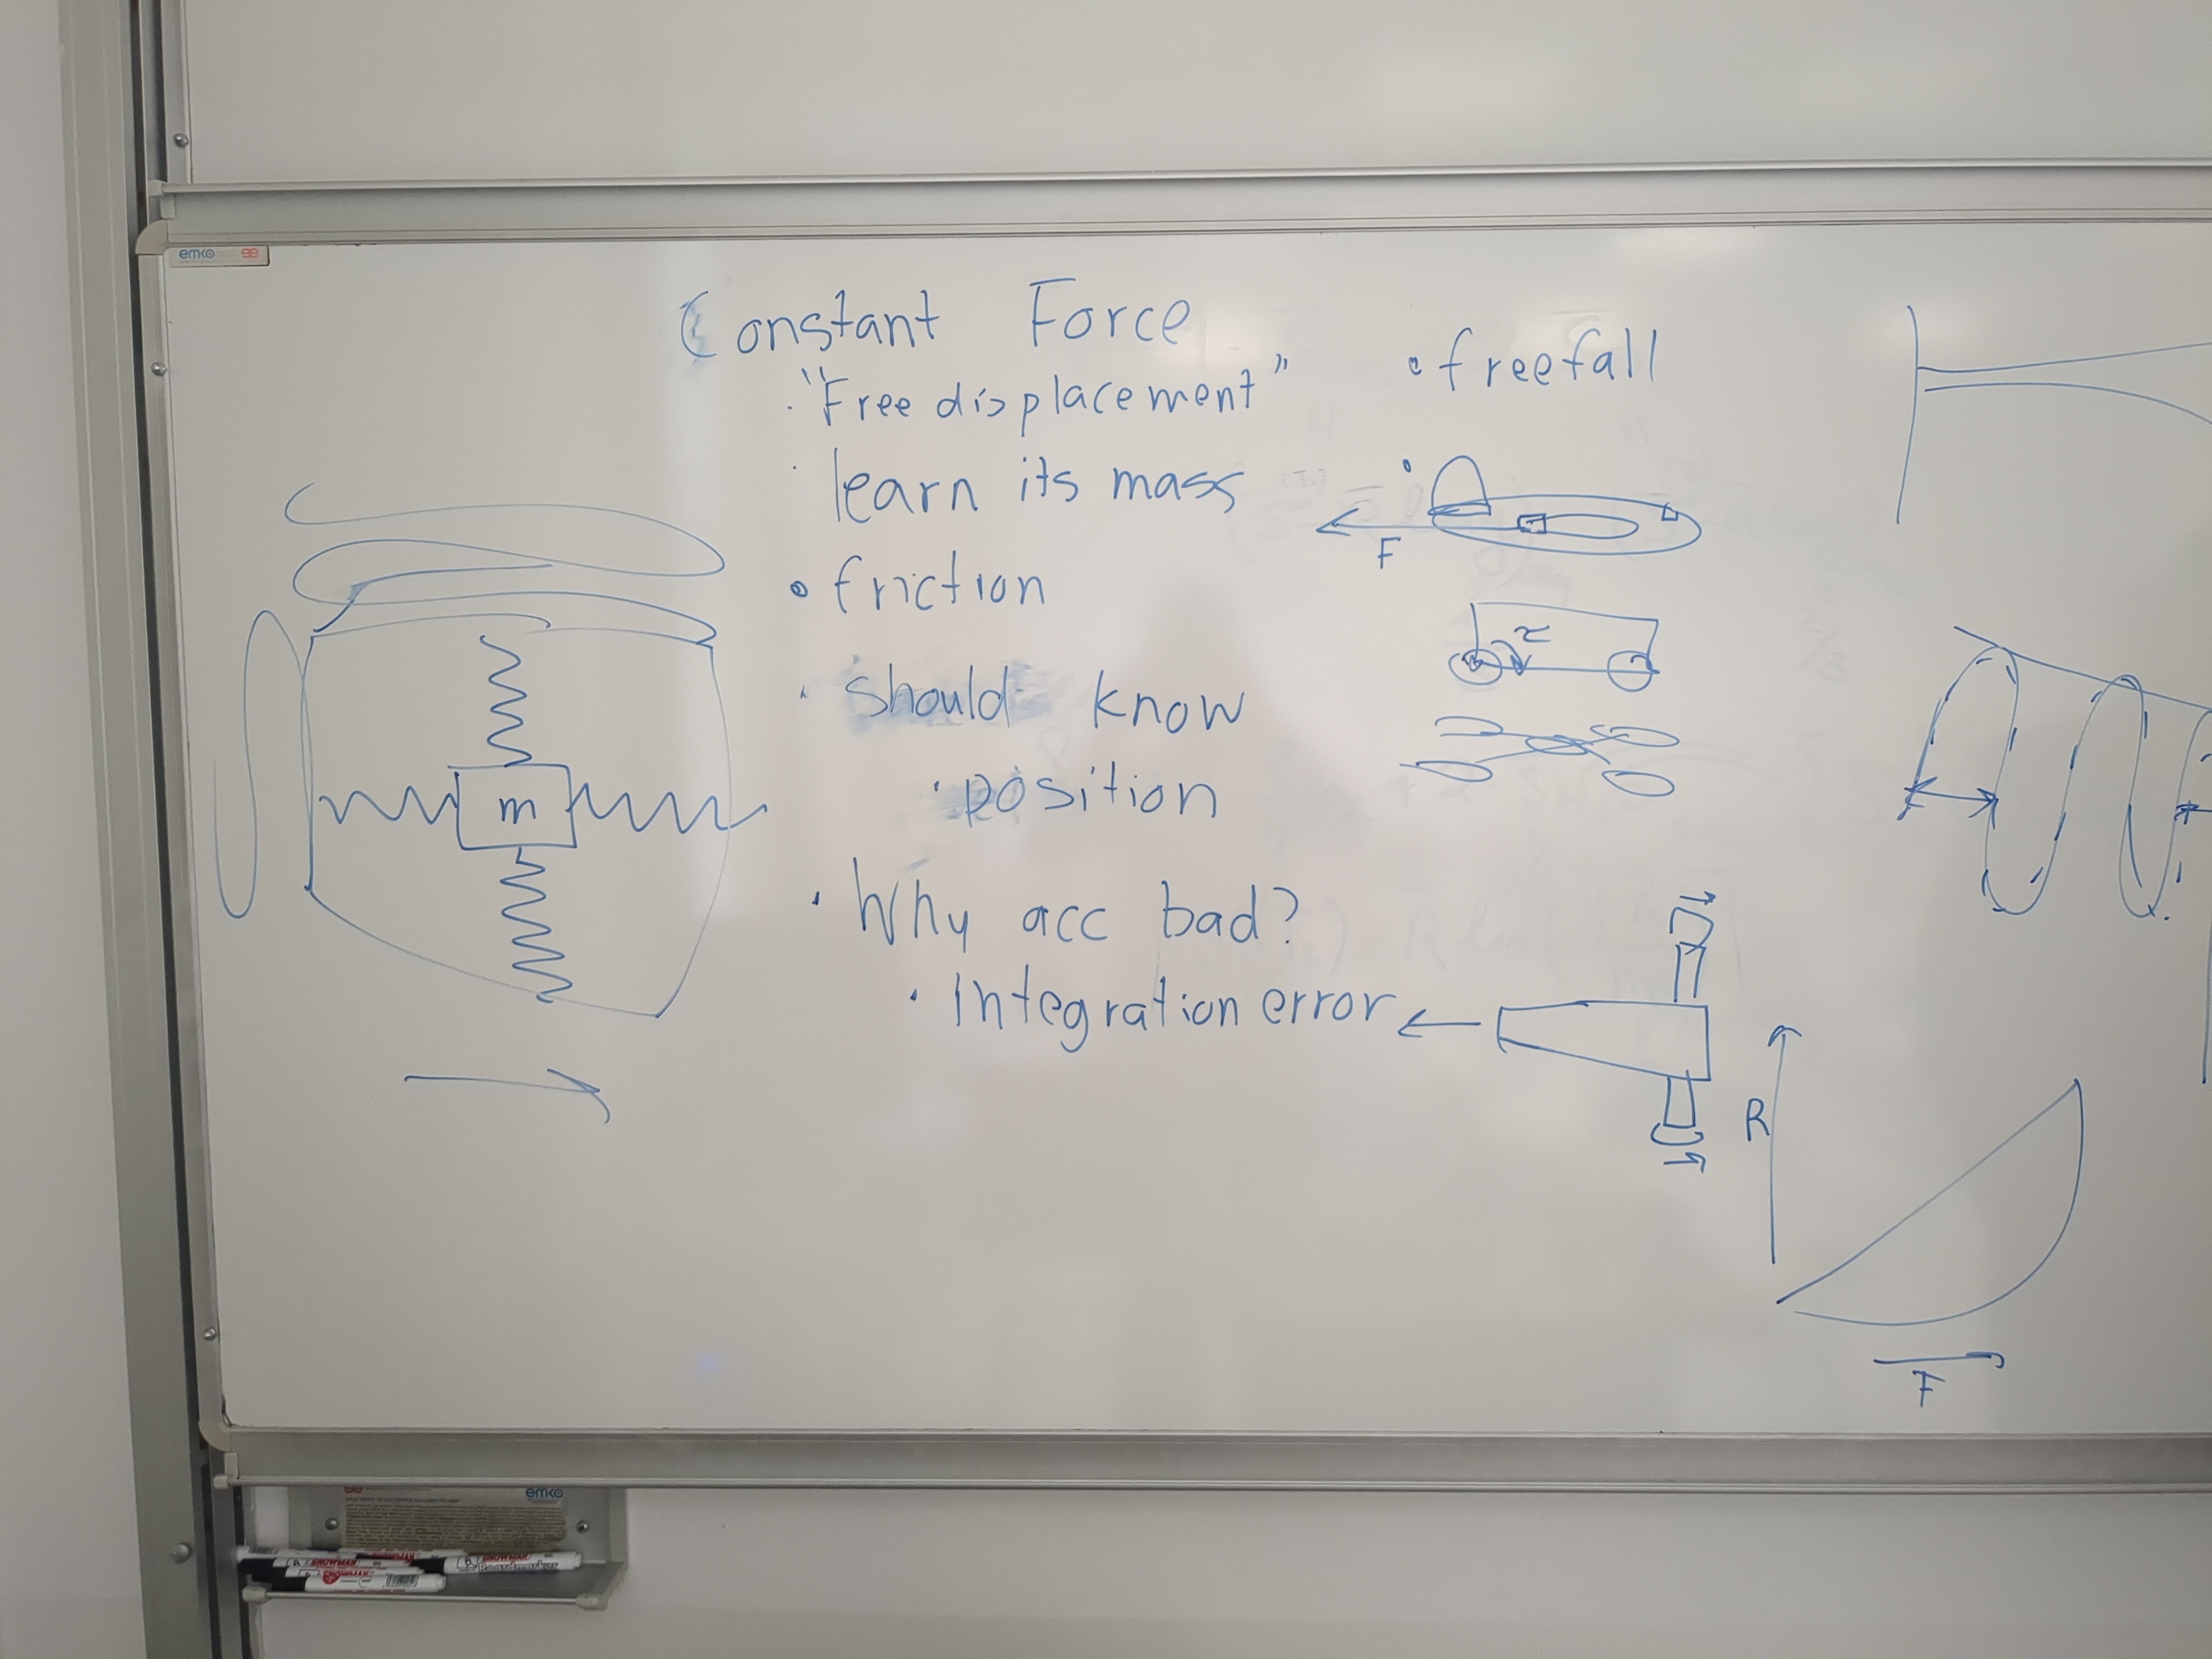 emko
Constant Force
· "Free displacement"
· learn its mass
• friction
· should know
· position
· Why acc bad?
· Integration error
• freefall
F
τ
m
R
F
emko
SNOWMAN
SNOWMAN
SNOWMAN
Boardmarker